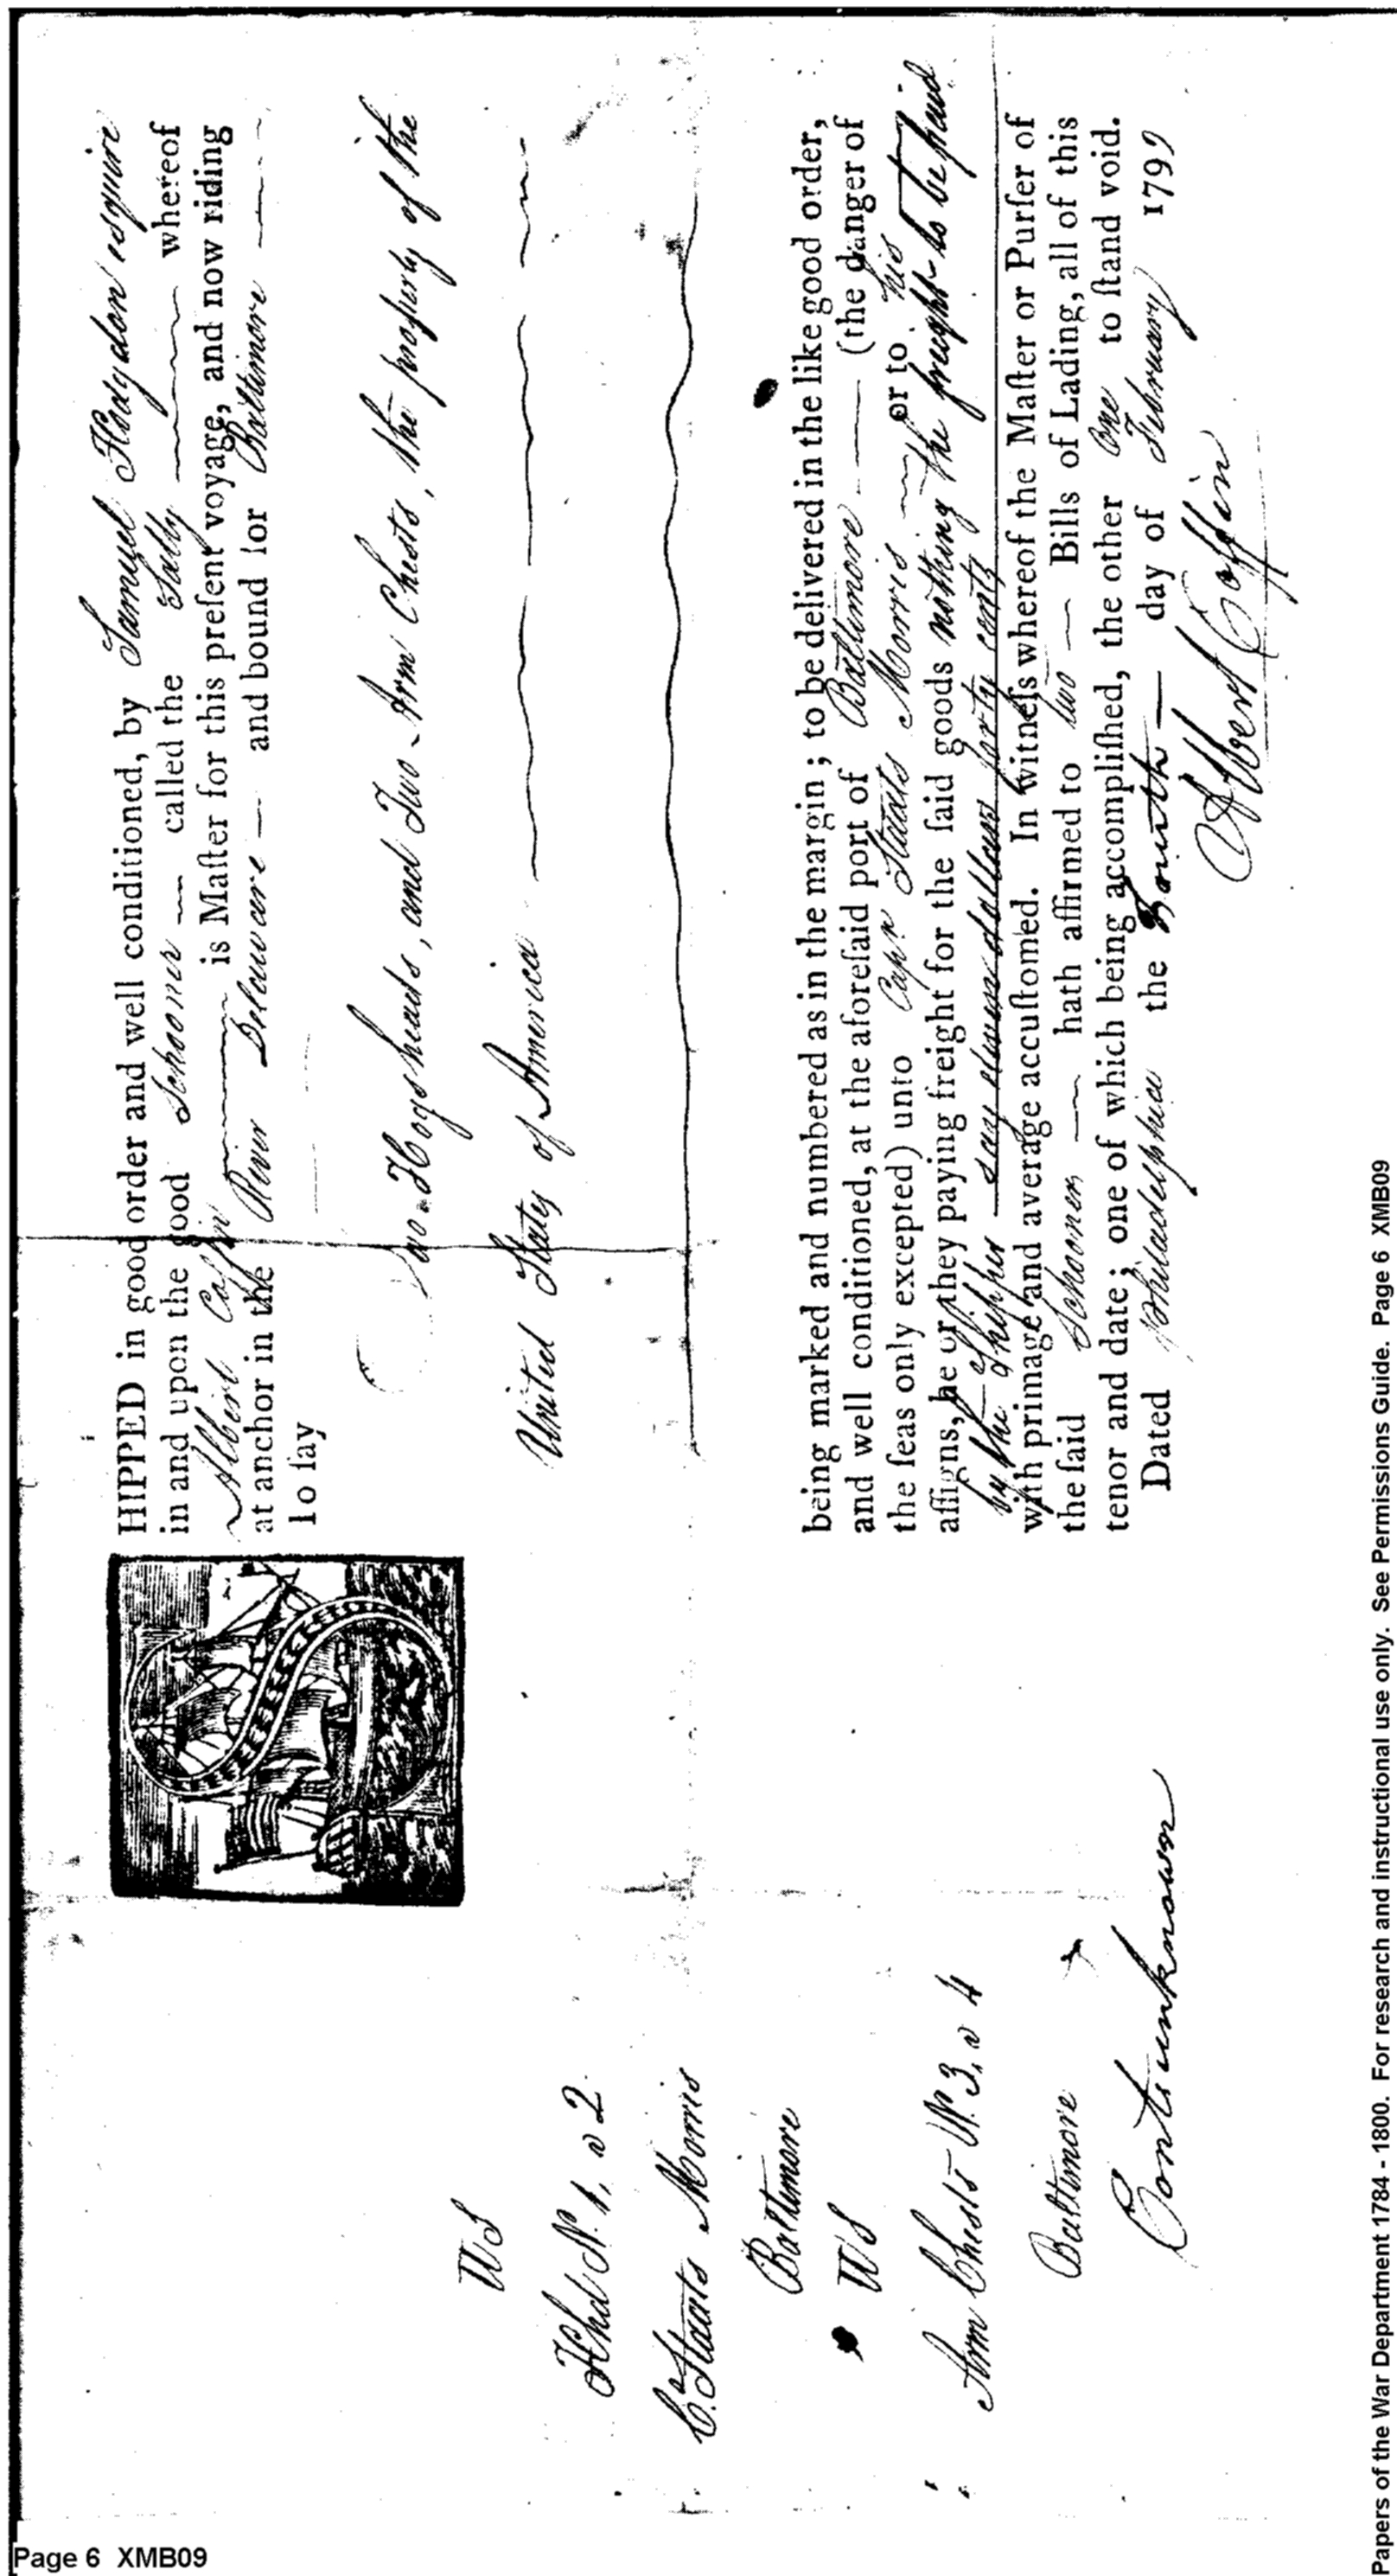 HIPPED in good order and well conditioned, by Samuel Hodgdon esquire
in and upon the good Schooner — called the Sally — whereof
Albert Coffin — is Maſter for this preſent voyage, and now riding
at anchor in the River Delaware — and bound for Baltimore —
To ſay
Two Hogsheads, and Two Arm Chests, the property of the
United States of America —
being marked and numbered as in the margin; to be delivered in the like good order,
and well conditioned, at the aforeſaid port of Baltimore — (the danger of
the ſeas only excepted) unto Capt Staats Morris — or to his
aſſigns, he or they paying freight for the ſaid goods nothing the freight to be paid
by the Shipper say eleven dollars forty cents
with primage and average accuſtomed. In witneſs whereof the Maſter or Purſer of
the ſaid Schooner — hath affirmed to two — Bills of Lading, all of this
tenor and date; one of which being accompliſhed, the other One to ſtand void.
Dated Philadelphia the Fourth — day of February 1799
Albert Coffin
US
Hhd N. 1, a 2
C. Staats Morris
Baltimore
US
Arm Chests N. 3, a 4
Baltimore
Conts unknown
Page 6 XMB09
Papers of the War Department 1784 - 1800. For research and instructional use only. See Permissions Guide. Page 6 XMB09